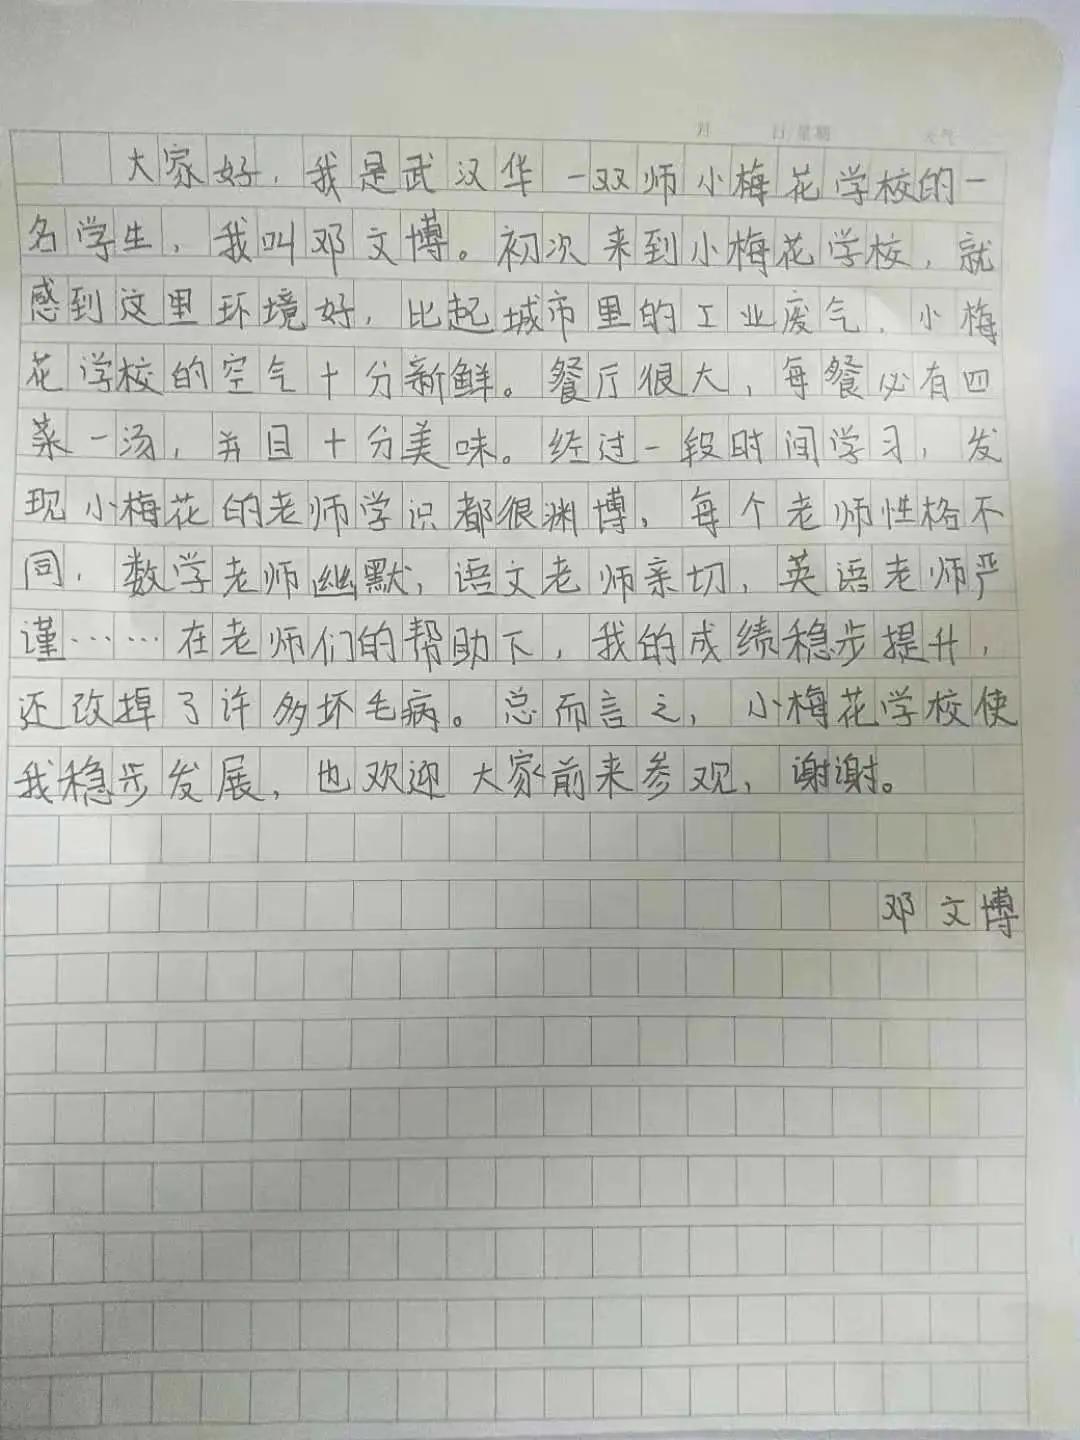 月 日 星期 天气
大家好，我是武汉华一双师小梅花学校的一
名学生，我叫邓文博。初次来到小梅花学校，就
感到这里环境好，比起城市里的工业废气，小梅
花学校的空气十分新鲜。餐厅很大，每餐必有四
菜一汤，并且十分美味。经过一段时间学习，发
现小梅花的老师学识都很渊博，每个老师性格不
同，数学老师幽默，语文老师亲切，英语老师严
谨……在老师们的帮助下，我的成绩稳步提升，
还改掉了许多坏毛病。总而言之，小梅花学校使
我稳步发展，也欢迎大家前来参观，谢谢。
邓文博